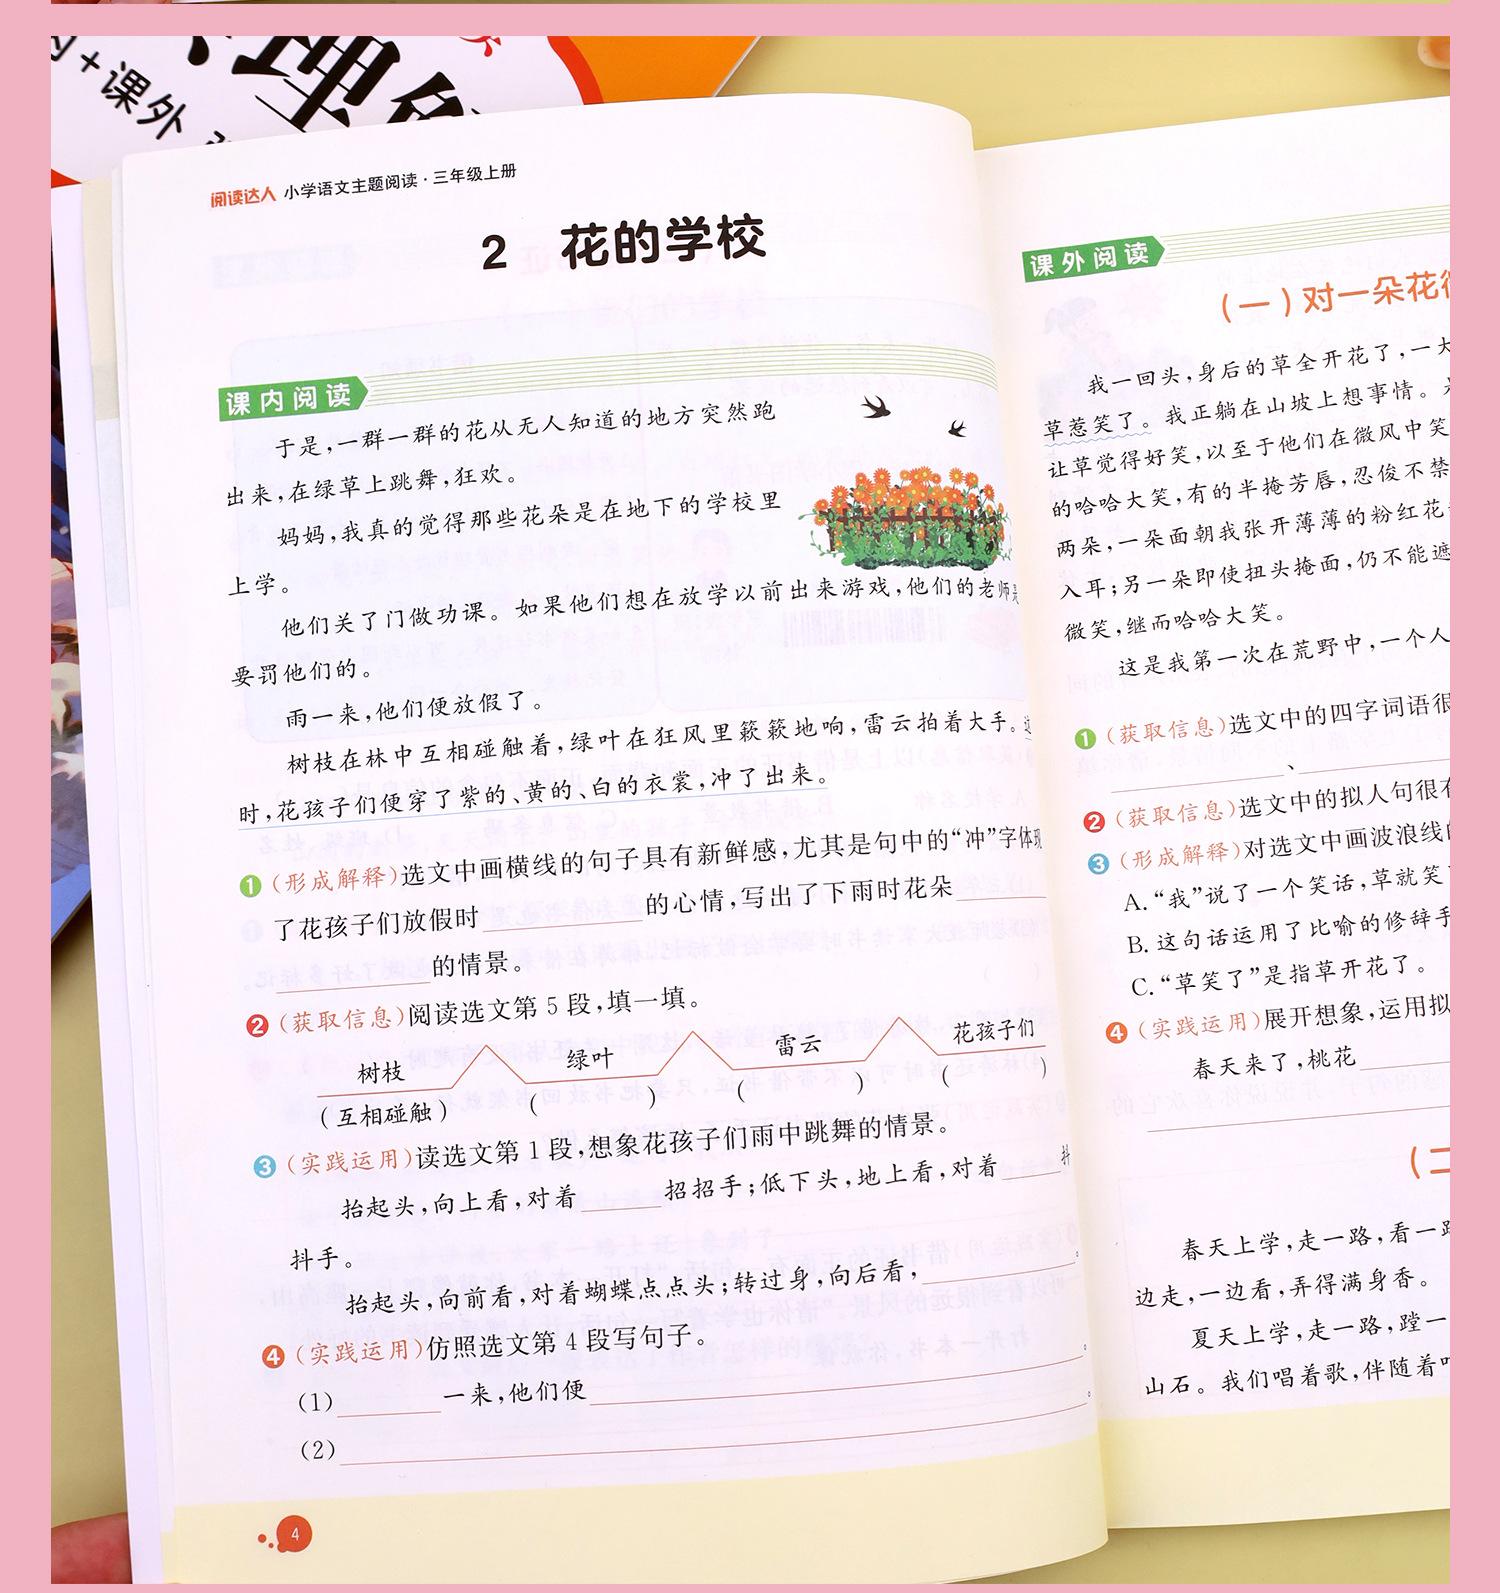 +课外
阅读达人 小学语文主题阅读·三年级上册
2 花的学校
课内阅读
于是,一群一群的花从无人知道的地方突然跑
出来,在绿草上跳舞,狂欢。
妈妈,我真的觉得那些花朵是在地下的学校里
上学。
他们关了门做功课。如果他们想在放学以前出来游戏,他们的老师是
要罚他们的。
雨一来,他们便放假了。
树枝在林中互相碰触着,绿叶在狂风里簌簌地响,雷云拍着大手。这
时,花孩子们便穿了紫的、黄的、白的衣裳,冲了出来。
1 (形成解释)选文中画横线的句子具有新鲜感,尤其是句中的“冲”字体现
了花孩子们放假时________的心情,写出了下雨时花朵____
________的情景。
2 (获取信息)阅读选文第5段,填一填。
树枝 绿叶 雷云 花孩子们
(互相碰触) ( ) ( ) ( )
3 (实践运用)读选文第1段,想象花孩子们雨中跳舞的情景。
抬起头,向上看,对着____招招手;低下头,地上看,对着____抖
抖手。
抬起头,向前看,对着蝴蝶点点头;转过身,向后看,________。
4 (实践运用)仿照选文第4段写句子。
(1)____一来,他们便________。
(2)________。
4
课外阅读
(一)对一朵花
我一回头,身后的草全开花了,一大
草惹笑了。我正躺在山坡上想事情。
让草觉得好笑,以至于他们在微风中笑
的哈哈大笑,有的半掩芳唇,忍俊不禁
两朵,一朵面朝我张开薄薄的粉红花
入耳;另一朵即使扭头掩面,仍不能遮
微笑,继而哈哈大笑。
这是我第一次在荒野中,一个人
1 (获取信息)选文中的四字词语很
________、________
2 (获取信息)选文中的拟人句很有
3 (形成解释)对选文中画波浪线的
A.“我”说了一个笑话,草就笑
B.这句话运用了比喻的修辞手
C.“草笑了”是指草开花了。
4 (实践运用)展开想象,运用拟
春天来了,桃花____
(二
春天上学,走一路,看一路
边走,一边看,弄得满身香。
夏天上学,走一路,蹚一
山石。我们唱着歌,伴随着